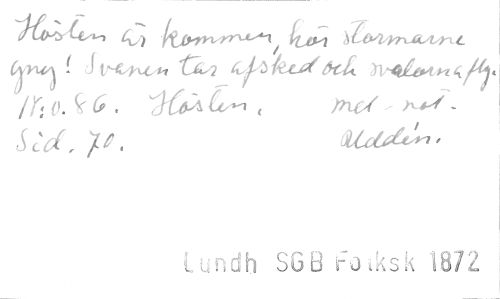 Hösten är kommen, hör stormarne
gny! Svanen tar afsked och svalorna fly.
N:o. 86. Hösten. mel-not-
Sid. 70. Uddén.
Lundh SGB Folksk 1872